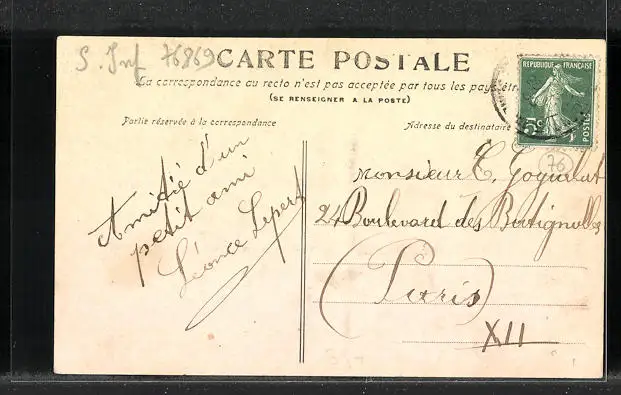 S. Inf 76869
CARTE POSTALE
La correspondance au recto n'est pas acceptée par tous les pays étr
(SE RENSEIGNER A LA POSTE)
Partie réservée à la correspondance
Adresse du destinataire
REPUBLIQUE FRANÇAISE
5c
POSTES
76
Amitié d'un
petit ami
Léonce
Monsieur
24 Boulevard des Batignolles
(Paris)
XII